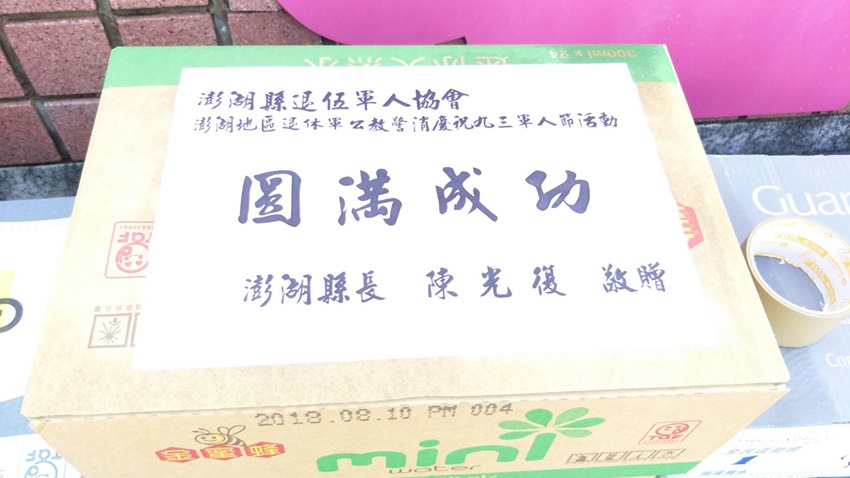 300ml x 24
澎湖縣退伍軍人協會
澎湖地區退休軍公教警消慶祝九三軍人節活動
圓滿成功
澎湖縣長 陳光復 敬贈
2018.08.10 PM 004
金蜜蜂
mini
water
TQF
TQF
Guar
Co